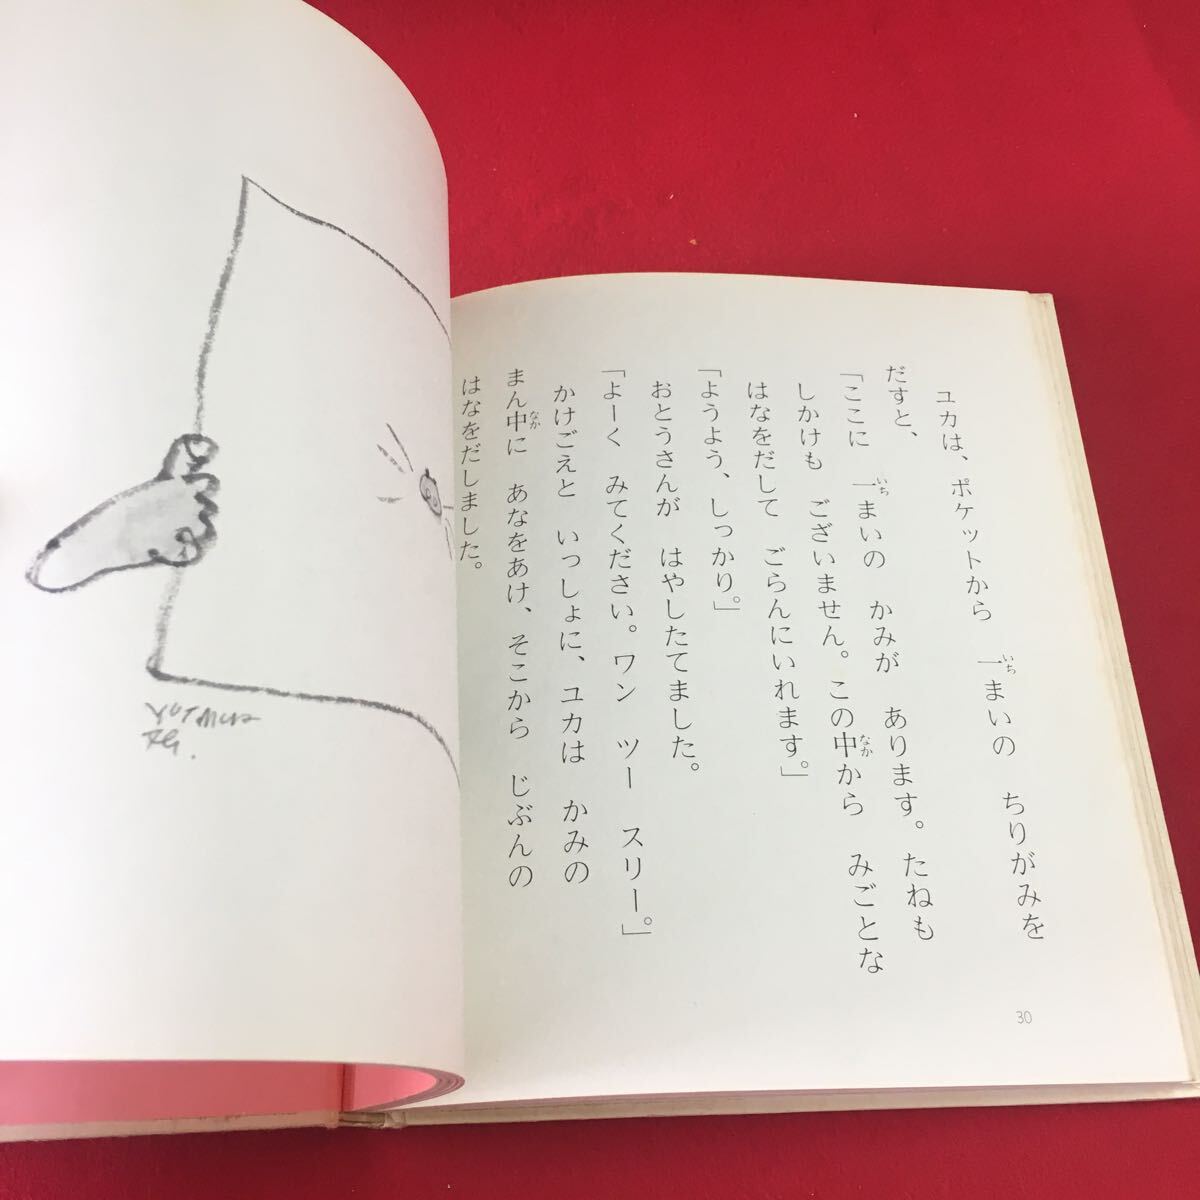 ユカは、ポケットから 一まいの ちりがみを
だすと、
「ここに 一まいの かみが あります。たねも
しかけも ございません。この中から みごとな
はなをだして ごらんにいれます。」
「ようよう、しっかり。」
おとうさんが はやしたてました。
「よーく みてください。ワン ツー スリー。」
かけごえと いっしょに、ユカは かみの
まん中に あなをあけ、そこから じぶんの
はなをだしました。
30